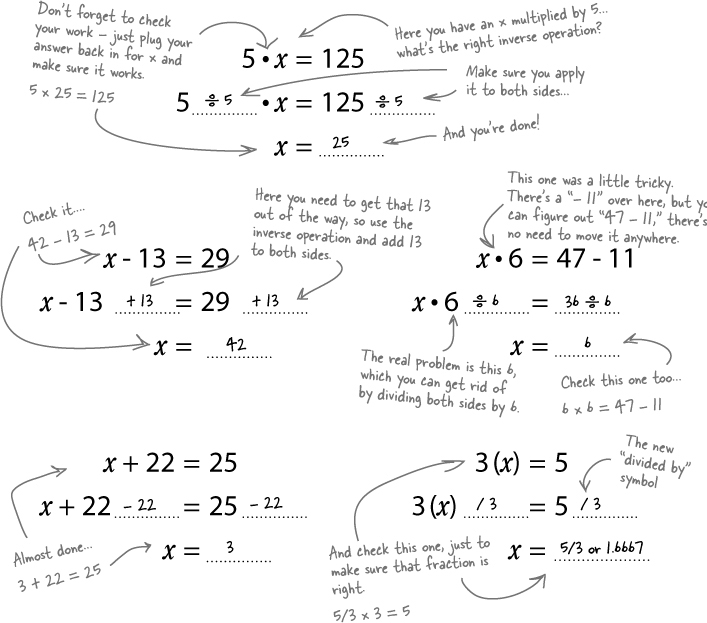 Don't forget to check
your work – just plug your
answer back in for x and
make sure it works.
5 x 25 = 125
Here you have an x multiplied by 5...
what's the right inverse operation?
5 • x = 125
Make sure you apply
it to both sides...
5 ÷ 5 • x = 125 ÷ 5
And you're done!
x = 25
Check it....
42 – 13 = 29
Here you need to get that 13
out of the way, so use the
inverse operation and add 13
to both sides.
x - 13 = 29
x - 13 + 13 = 29 + 13
x = 42
This one was a little tricky.
There's a "– 11" over here, but
can figure out "47 – 11," there's
no need to move it anywhere.
x • 6 = 47 - 11
x • 6 ÷ 6 = 36 ÷ 6
x = 6
The real problem is this 6,
which you can get rid of
by dividing both sides by 6.
Check this one too...
6 x 6 = 47 – 11
x + 22 = 25
x + 22 – 22 = 25 – 22
x = 3
Almost done...
3 + 22 = 25
3 (x) = 5
The new
"divided by"
symbol
3 (x) / 3 = 5 / 3
x = 5/3 or 1.6667
And check this one, just to
make sure that fraction is
right.
5/3 x 3 = 5